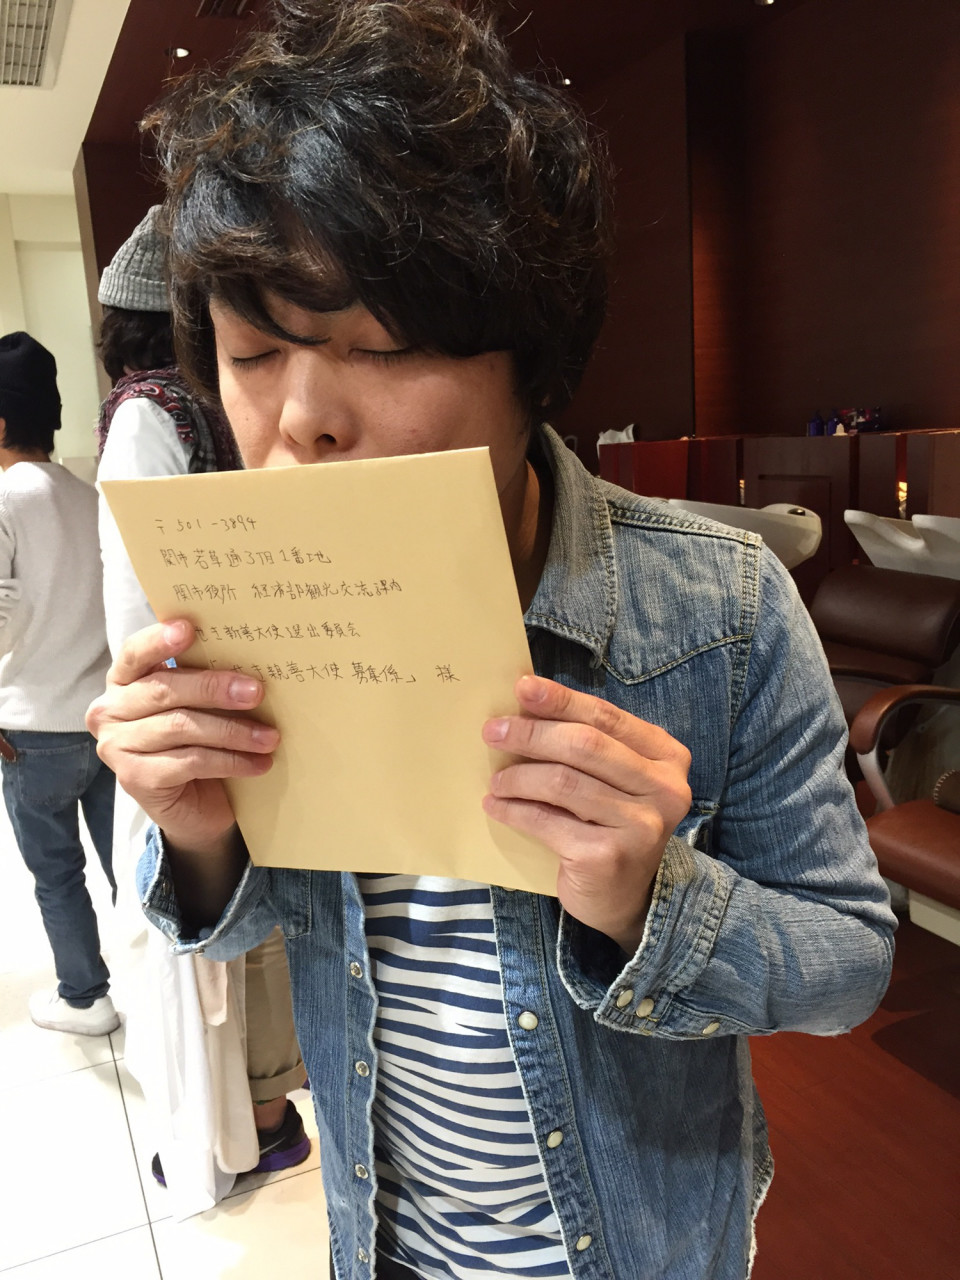 〒501-3894
関市若草通3丁目1番地
関市役所 経済部観光交流課内
地主親善大使選出委員会
主親善大使 募集係」 様